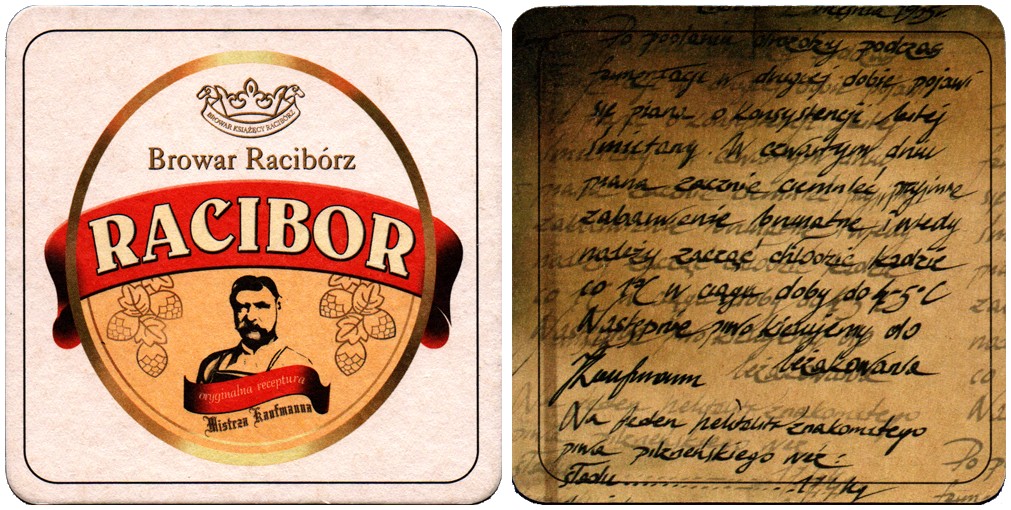 BROWAR KSIĄŻĘCY RACIBÓRZ
Browar Racibórz
RACIBOR
oryginalna receptura
Mistrza Kaufmanna
Po podaniu drożdży podczas
fermentacji w drugiej dobie pojawi
się piana o konsystencji bitej
śmietany. W czwartym dniu
piana zacznie ciemnieć, przyjmie
zabarwienie brunatne i wtedy
należy zacząć chłodzić kadzie
co 1°C w ciągu doby do 4-5°C
Następnie piwo kierujemy do
leżakowania
Kaufmann
Na jeden hektolitr znakomitego
piwa pilzneńskiego
słodu 17,4 kg